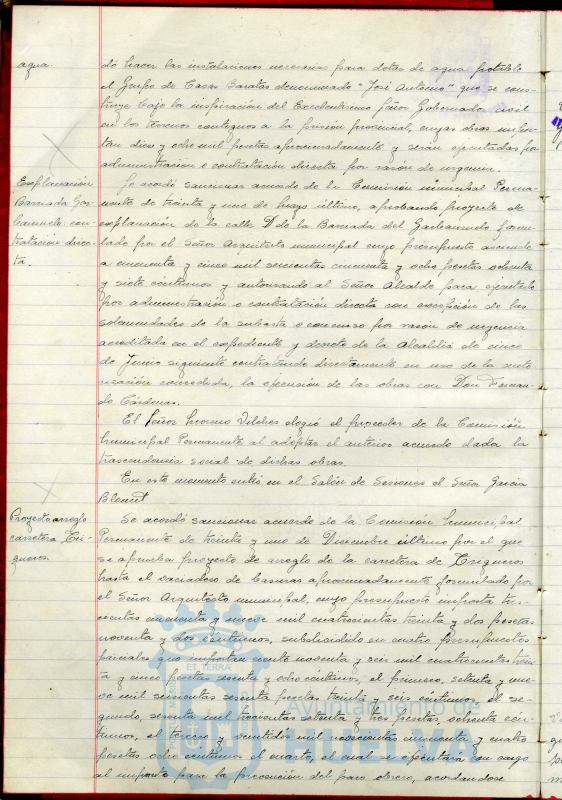 agua.
do hacer las instalaciones necesarias para dotar de agua potable
el Grupo de Casas Baratas denominado "José Antonio" que se cons-
truye bajo la inspiración del Excelentísimo Señor Gobernador Civil
en los terrenos contiguos a la prisión provincial, cuyas obras impor-
tan diez y ocho mil pesetas aproximadamente y serán ejecutadas por
administración o contratación directa por razón de urgencia.
Explanación
Barriada Gar-
banuelo con-
tratación direc-
ta.
Se acordó sancionar acuerdo de la Comisión municipal Perma-
nente de treinta y uno de Mayo último, aprobando proyecto de
explanación de la calle D de la Barriada del Garbanuelo formu-
lado por el Señor Arquitecto municipal cuyo presupuesto asciende
a cincuenta y cinco mil seiscientas cincuenta y ocho pesetas ochenta
y siete céntimos y autorizando al Señor Alcalde para ejecutarlo
por administración o contratación directa con excepción de las
solemnidades de la subasta o concurso por razón de urgencia
acreditada en el expediente y decreto de la Alcaldía de cinco
de Junio siguiente contratando directamente en uso de la auto-
rización concedida, la ejecución de las obras con Don Fernan-
do Cárdenas.
El Señor Moreno Vilches elogió el proceder de la Comisión
Municipal Permanente al adoptar el anterior acuerdo dada la
trascendencia social de dichas obras.
En este momento entró en el Salón de Sesiones el Señor García
Blount
Proyecto arreglo
carretera Tri-
gueros.
Se acordó sancionar acuerdo de la Comisión Municipal
Permanente de treinta y uno de Diciembre último por el que
se aprueba proyecto de arreglo de la carretera de Trigueros
hasta el vaciadero de basuras aproximadamente formulado por
el Señor Arquitecto municipal, cuyo presupuesto importa tres-
cientas cincuenta y nueve mil cuatrocientas treinta y dos pesetas
noventa y dos céntimos, subdividido en cuatro presupuestos
parciales que importan ciento noventa y seis mil cuatrocientas trein-
ta y cinco pesetas sesenta y ocho céntimos, el primero, setenta y nue-
ve mil seiscientas sesenta pesetas treinta y seis céntimos el se-
gundo, sesenta mil trescientas setenta y tres pesetas, ochenta cén-
timos, el tercero y veintidós mil novecientas cincuenta y cuatro
pesetas ocho céntimos el cuarto, el cual se ejecutará con cargo
al importe para la prevención del paro obrero, acordándose
ET TERRÆ
Ayuntamiento de
HUELVA